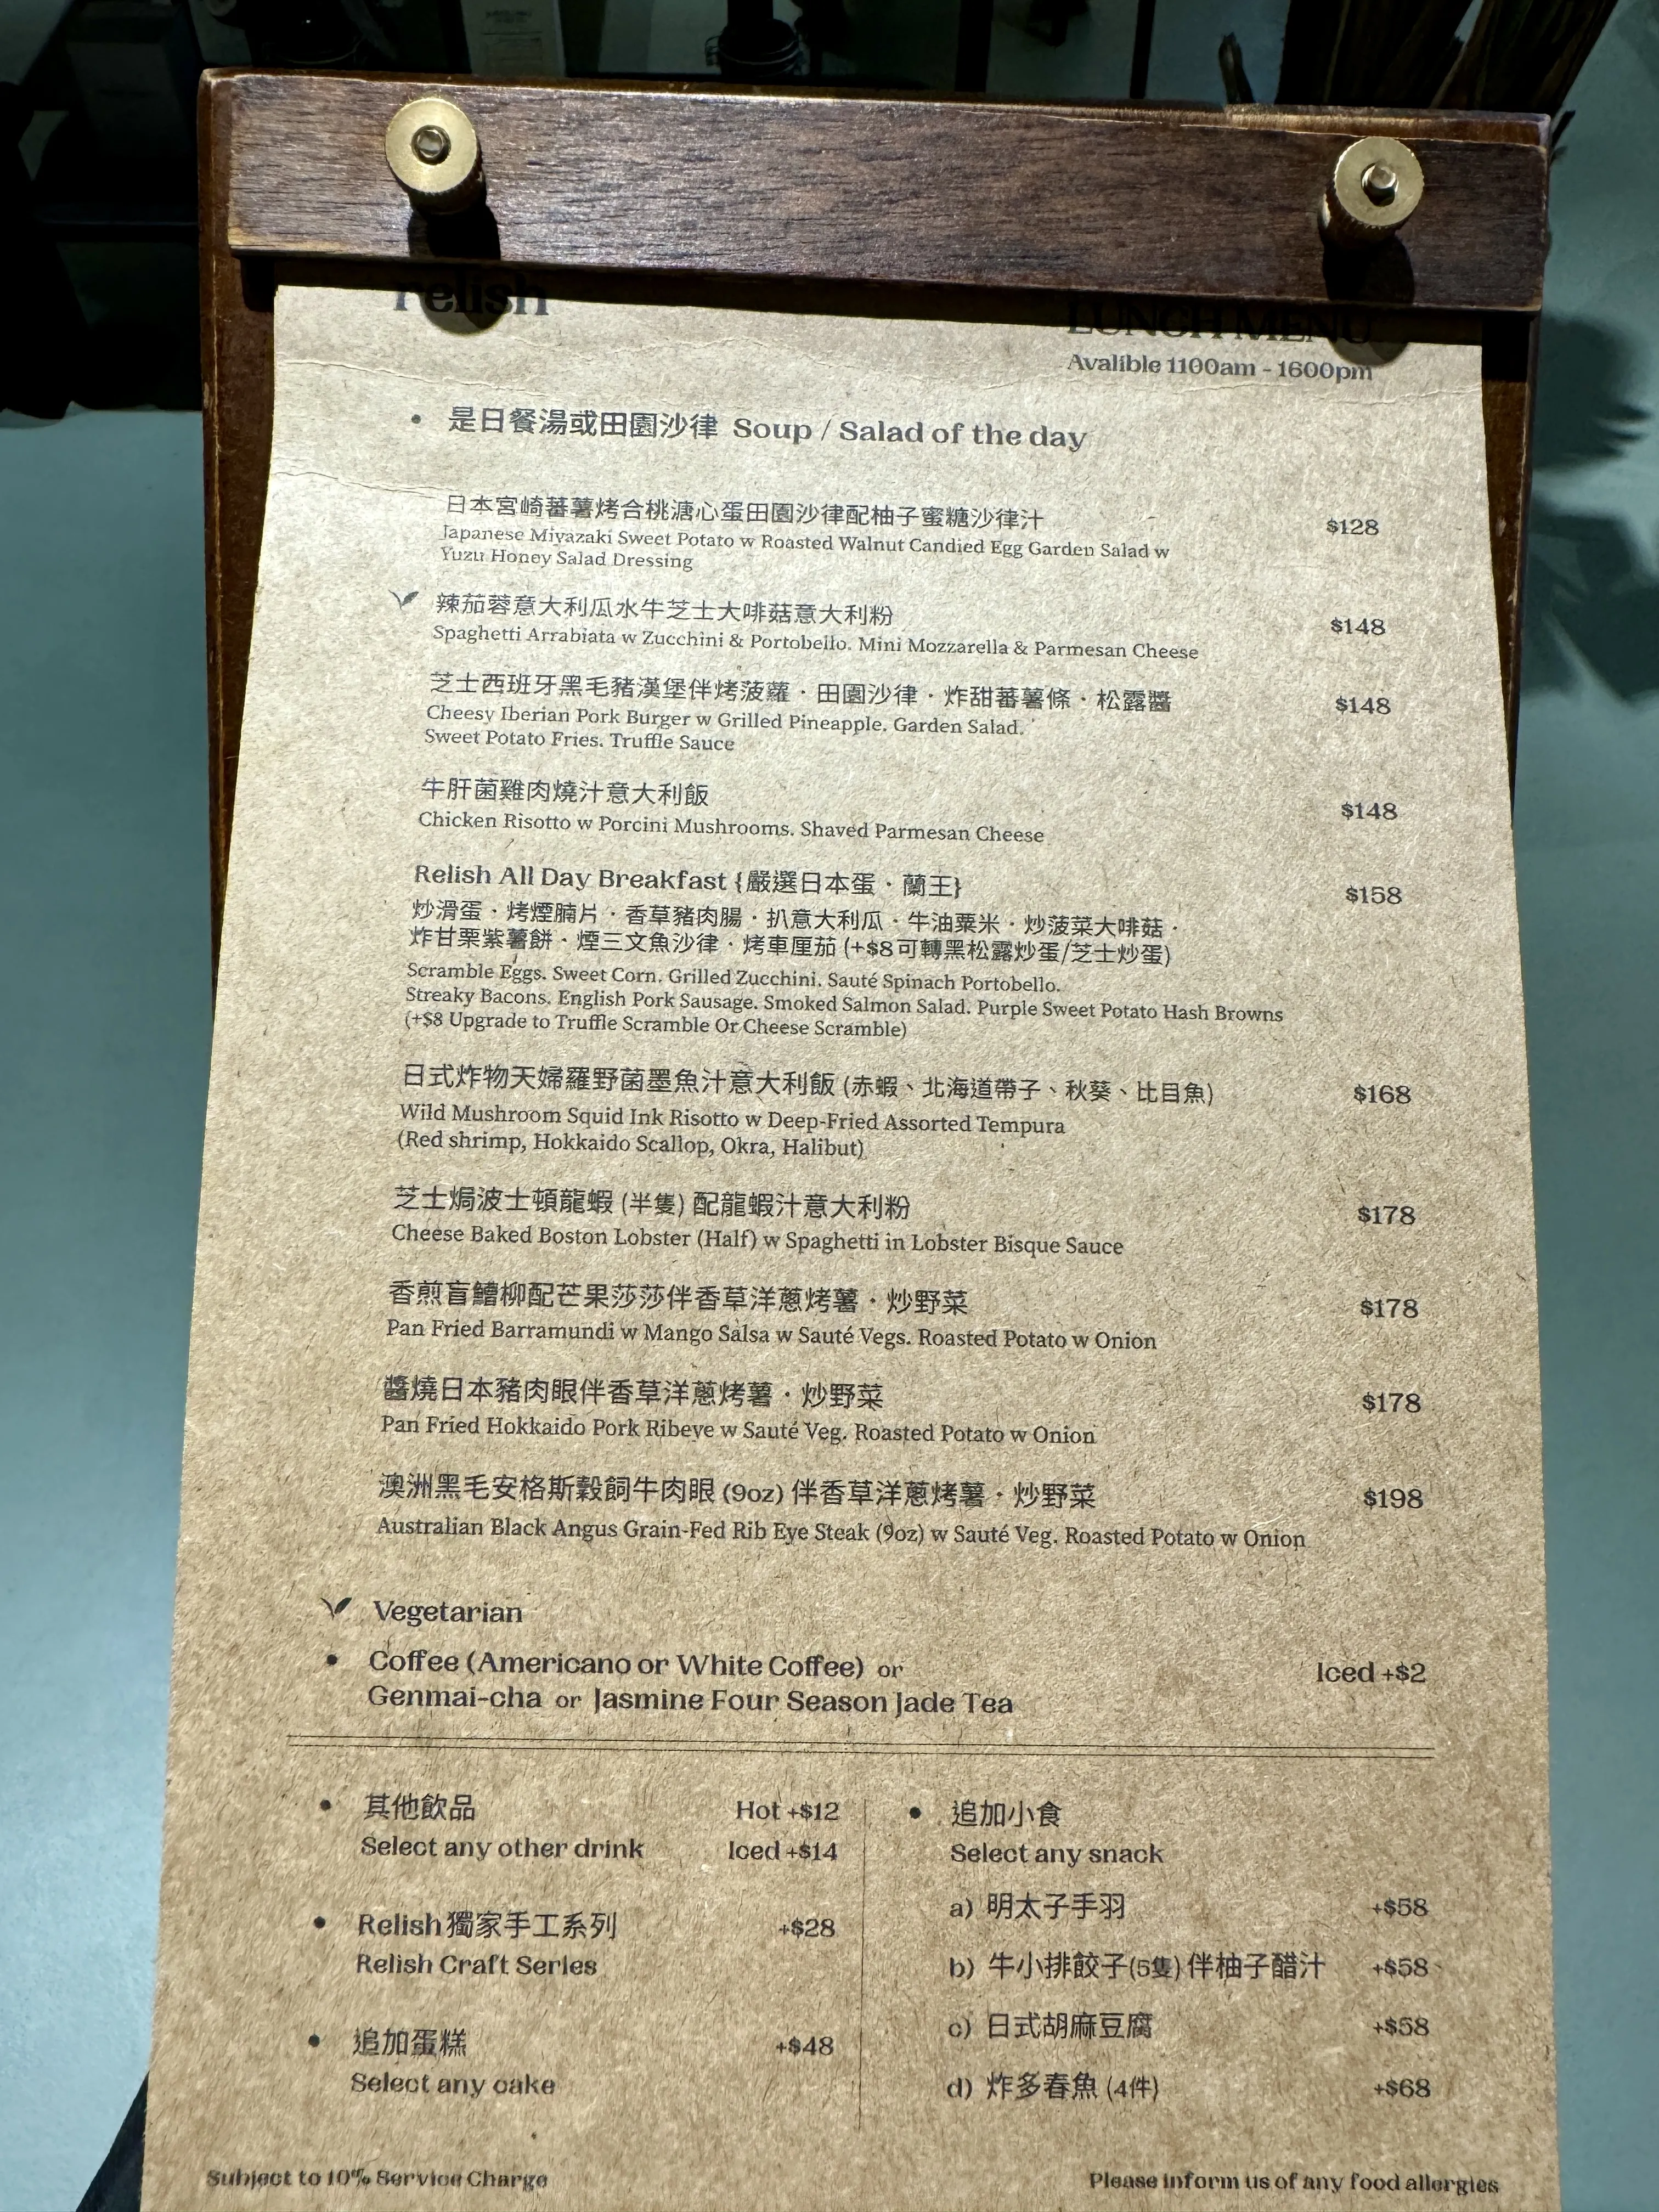 relish
LUNCH MENU
Avalible 1100am - 1600pm
• 是日餐湯或田園沙律 Soup / Salad of the day
日本宮崎蕃薯烤合桃溏心蛋田園沙律配柚子蜜糖沙律汁 $128
Japanese Miyazaki Sweet Potato w Roasted Walnut Candied Egg Garden Salad w
Yuzu Honey Salad Dressing
辣茄蓉意大利瓜水牛芝士大啡菇意大利粉 $148
Spaghetti Arrabiata w Zucchini & Portobello. Mini Mozzarella & Parmesan Cheese
芝士西班牙黑毛豬漢堡伴烤菠蘿・田園沙律・炸甜蕃薯條・松露醬 $148
Cheesy Iberian Pork Burger w Grilled Pineapple. Garden Salad.
Sweet Potato Fries. Truffle Sauce
牛肝菌雞肉燒汁意大利飯 $148
Chicken Risotto w Porcini Mushrooms. Shaved Parmesan Cheese
Relish All Day Breakfast {嚴選日本蛋・蘭王} $158
炒滑蛋・烤煙腩片・香草豬肉腸・扒意大利瓜・牛油粟米・炒菠菜大啡菇・
炸甘栗紫薯餅・煙三文魚沙律・烤車厘茄 (+$8可轉黑松露炒蛋/芝士炒蛋)
Scramble Eggs. Sweet Corn. Grilled Zucchini. Sauté Spinach Portobello.
Streaky Bacons. English Pork Sausage. Smoked Salmon Salad. Purple Sweet Potato Hash Browns
(+$8 Upgrade to Truffle Scramble Or Cheese Scramble)
日式炸物天婦羅野菌墨魚汁意大利飯 (赤蝦、北海道帶子、秋葵、比目魚) $168
Wild Mushroom Squid Ink Risotto w Deep-Fried Assorted Tempura
(Red shrimp, Hokkaido Scallop, Okra, Halibut)
芝士焗波士頓龍蝦 (半隻) 配龍蝦汁意大利粉 $178
Cheese Baked Boston Lobster (Half) w Spaghetti in Lobster Bisque Sauce
香煎盲鰽柳配芒果莎莎伴香草洋蔥烤薯・炒野菜 $178
Pan Fried Barramundi w Mango Salsa w Sauté Vegs. Roasted Potato w Onion
醬燒日本豬肉眼伴香草洋蔥烤薯・炒野菜 $178
Pan Fried Hokkaido Pork Ribeye w Sauté Veg. Roasted Potato w Onion
澳洲黑毛安格斯穀飼牛肉眼 (9oz) 伴香草洋蔥烤薯・炒野菜 $198
Australian Black Angus Grain-Fed Rib Eye Steak (9oz) w Sauté Veg. Roasted Potato w Onion
Vegetarian
• Coffee (Americano or White Coffee) or Iced +$2
Genmai-cha or Jasmine Four Season Jade Tea
• 其他飲品 Hot +$12
Select any other drink Iced +$14
• Relish獨家手工系列 +$28
Relish Craft Series
• 追加蛋糕 +$48
Select any cake
• 追加小食
Select any snack
a) 明太子手羽 +$58
b) 牛小排餃子(5隻)伴柚子醋汁 +$58
c) 日式胡麻豆腐 +$58
d) 炸多春魚 (4件) +$68
Subject to 10% Service Charge
Please inform us of any food allergies